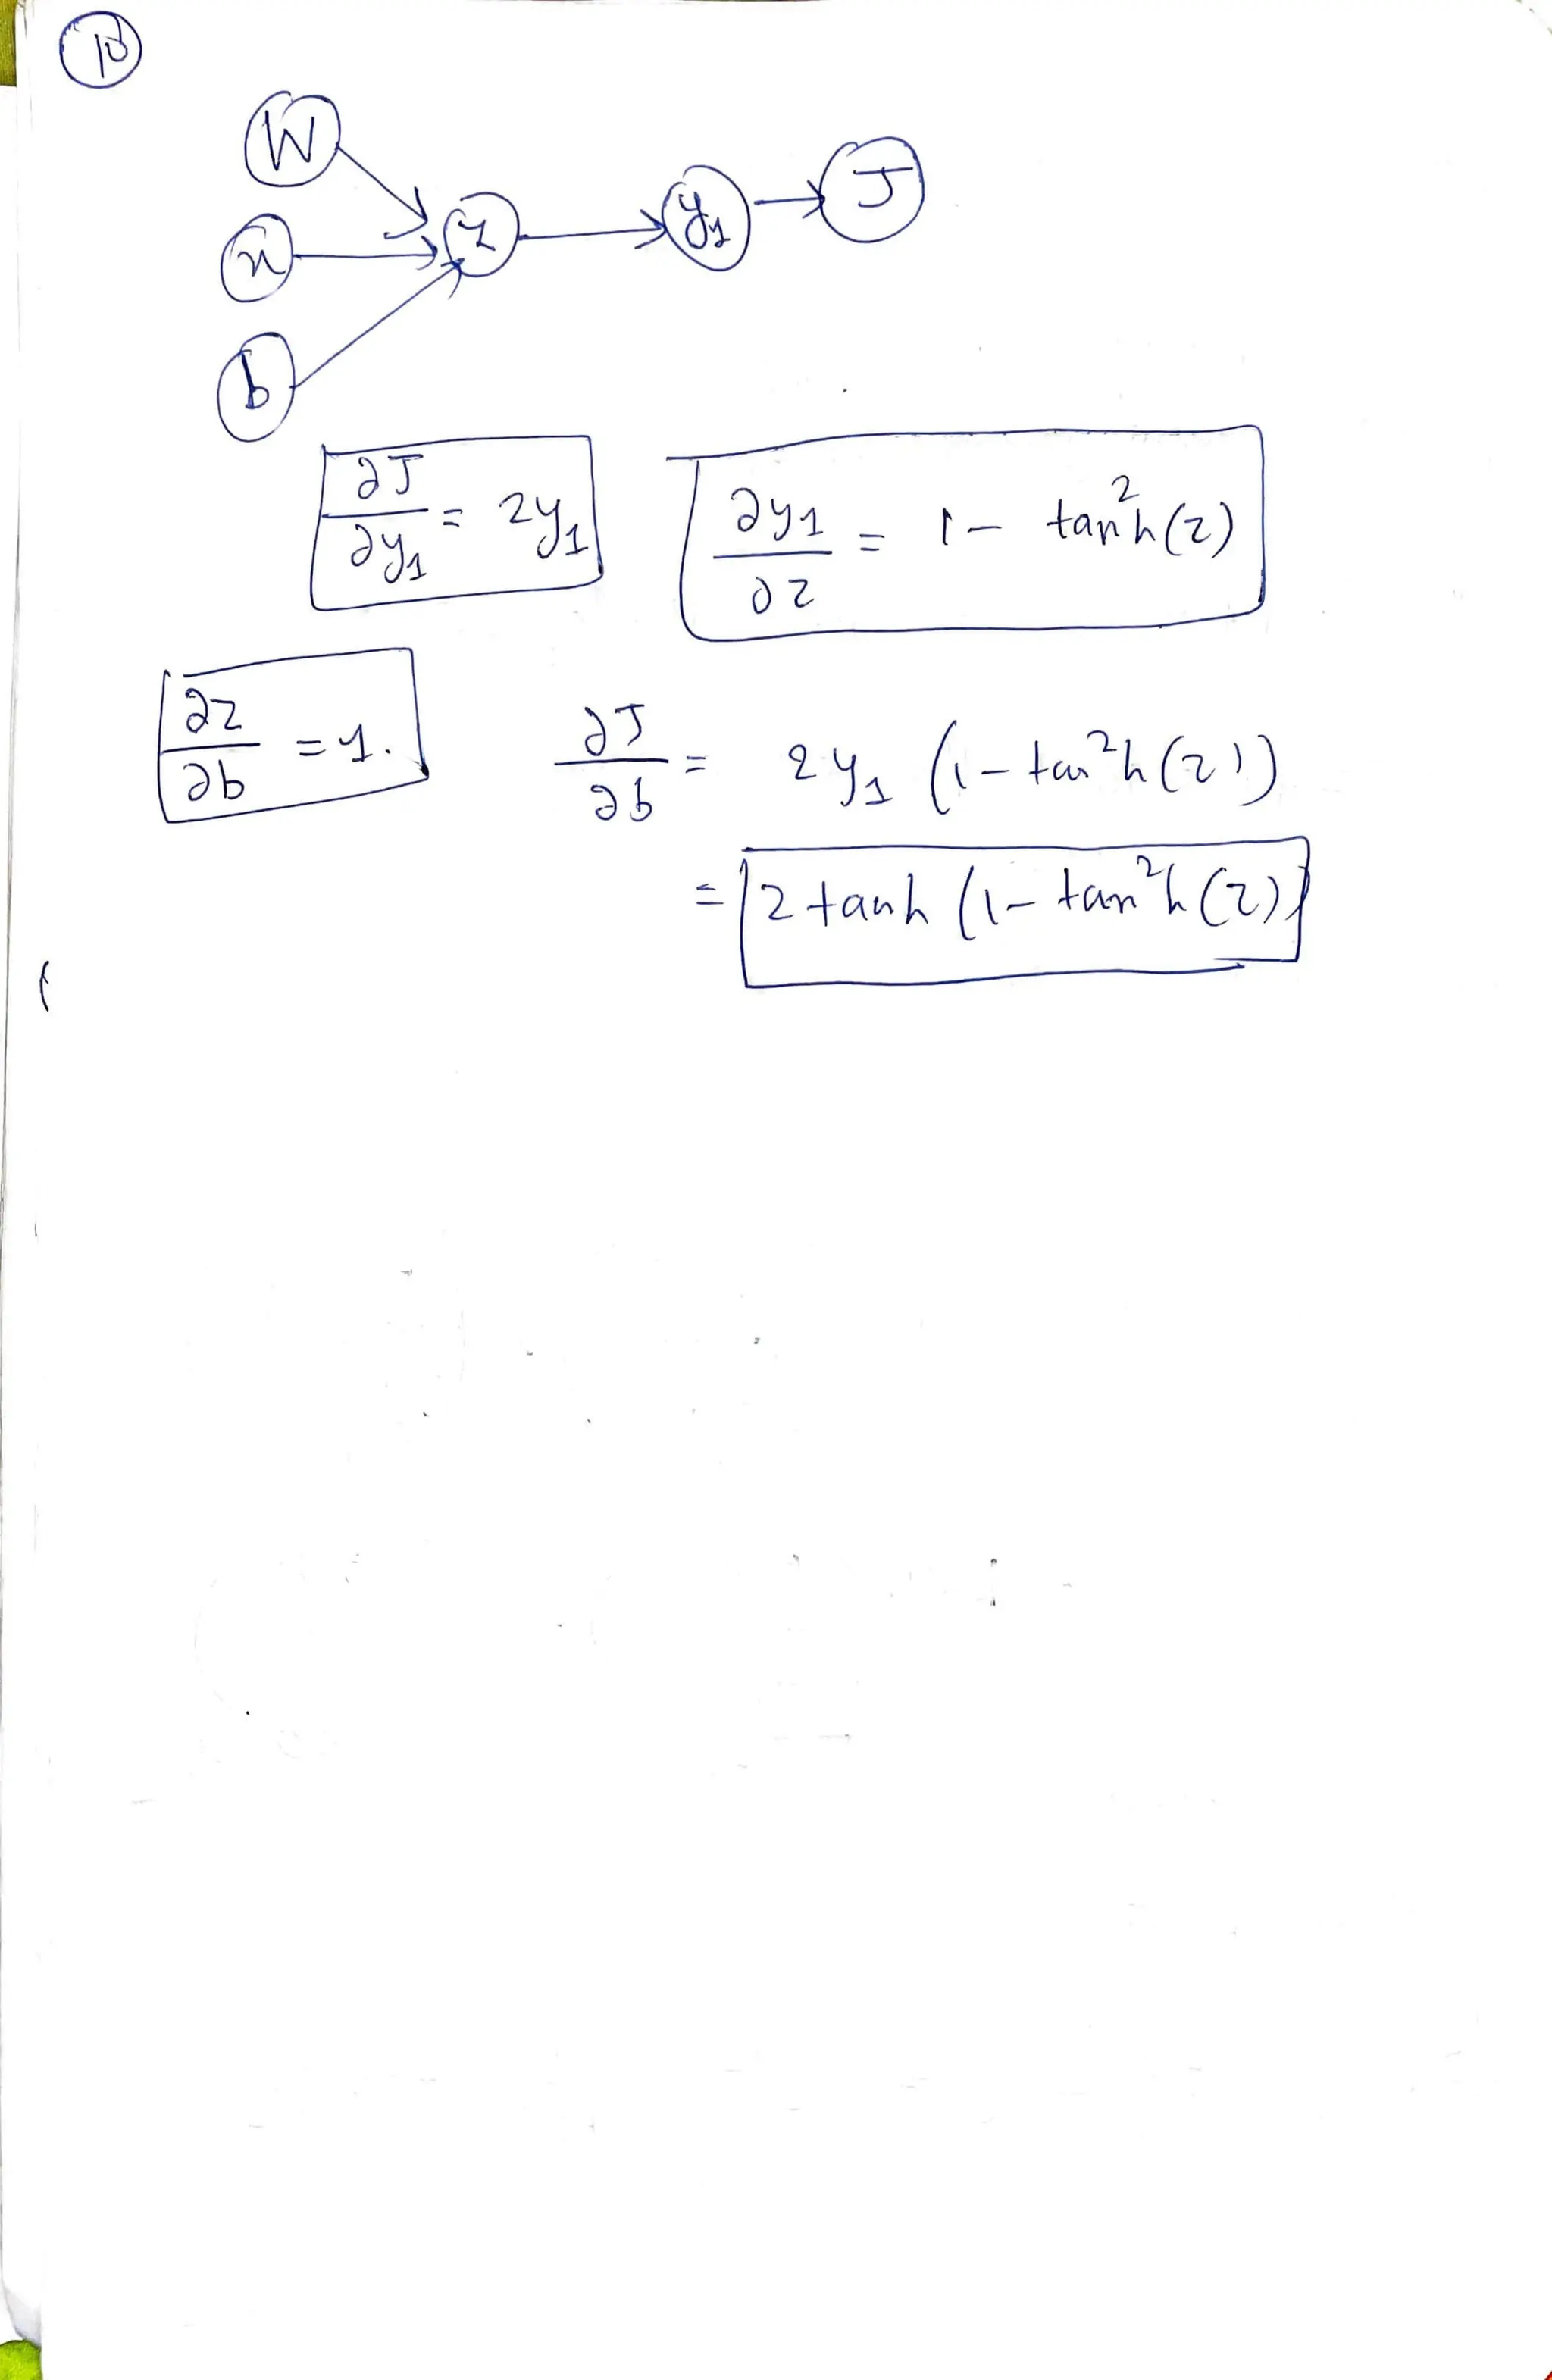 10
W
x
z
y₁
J
b
∂J/∂y₁ = 2y₁
∂y₁/∂z = 1 - tan²h(z)
∂z/∂b = 1.
∂J/∂b = 2y₁ (1 - tan²h(z))
= 2 tanh (1 - tan²h(z))